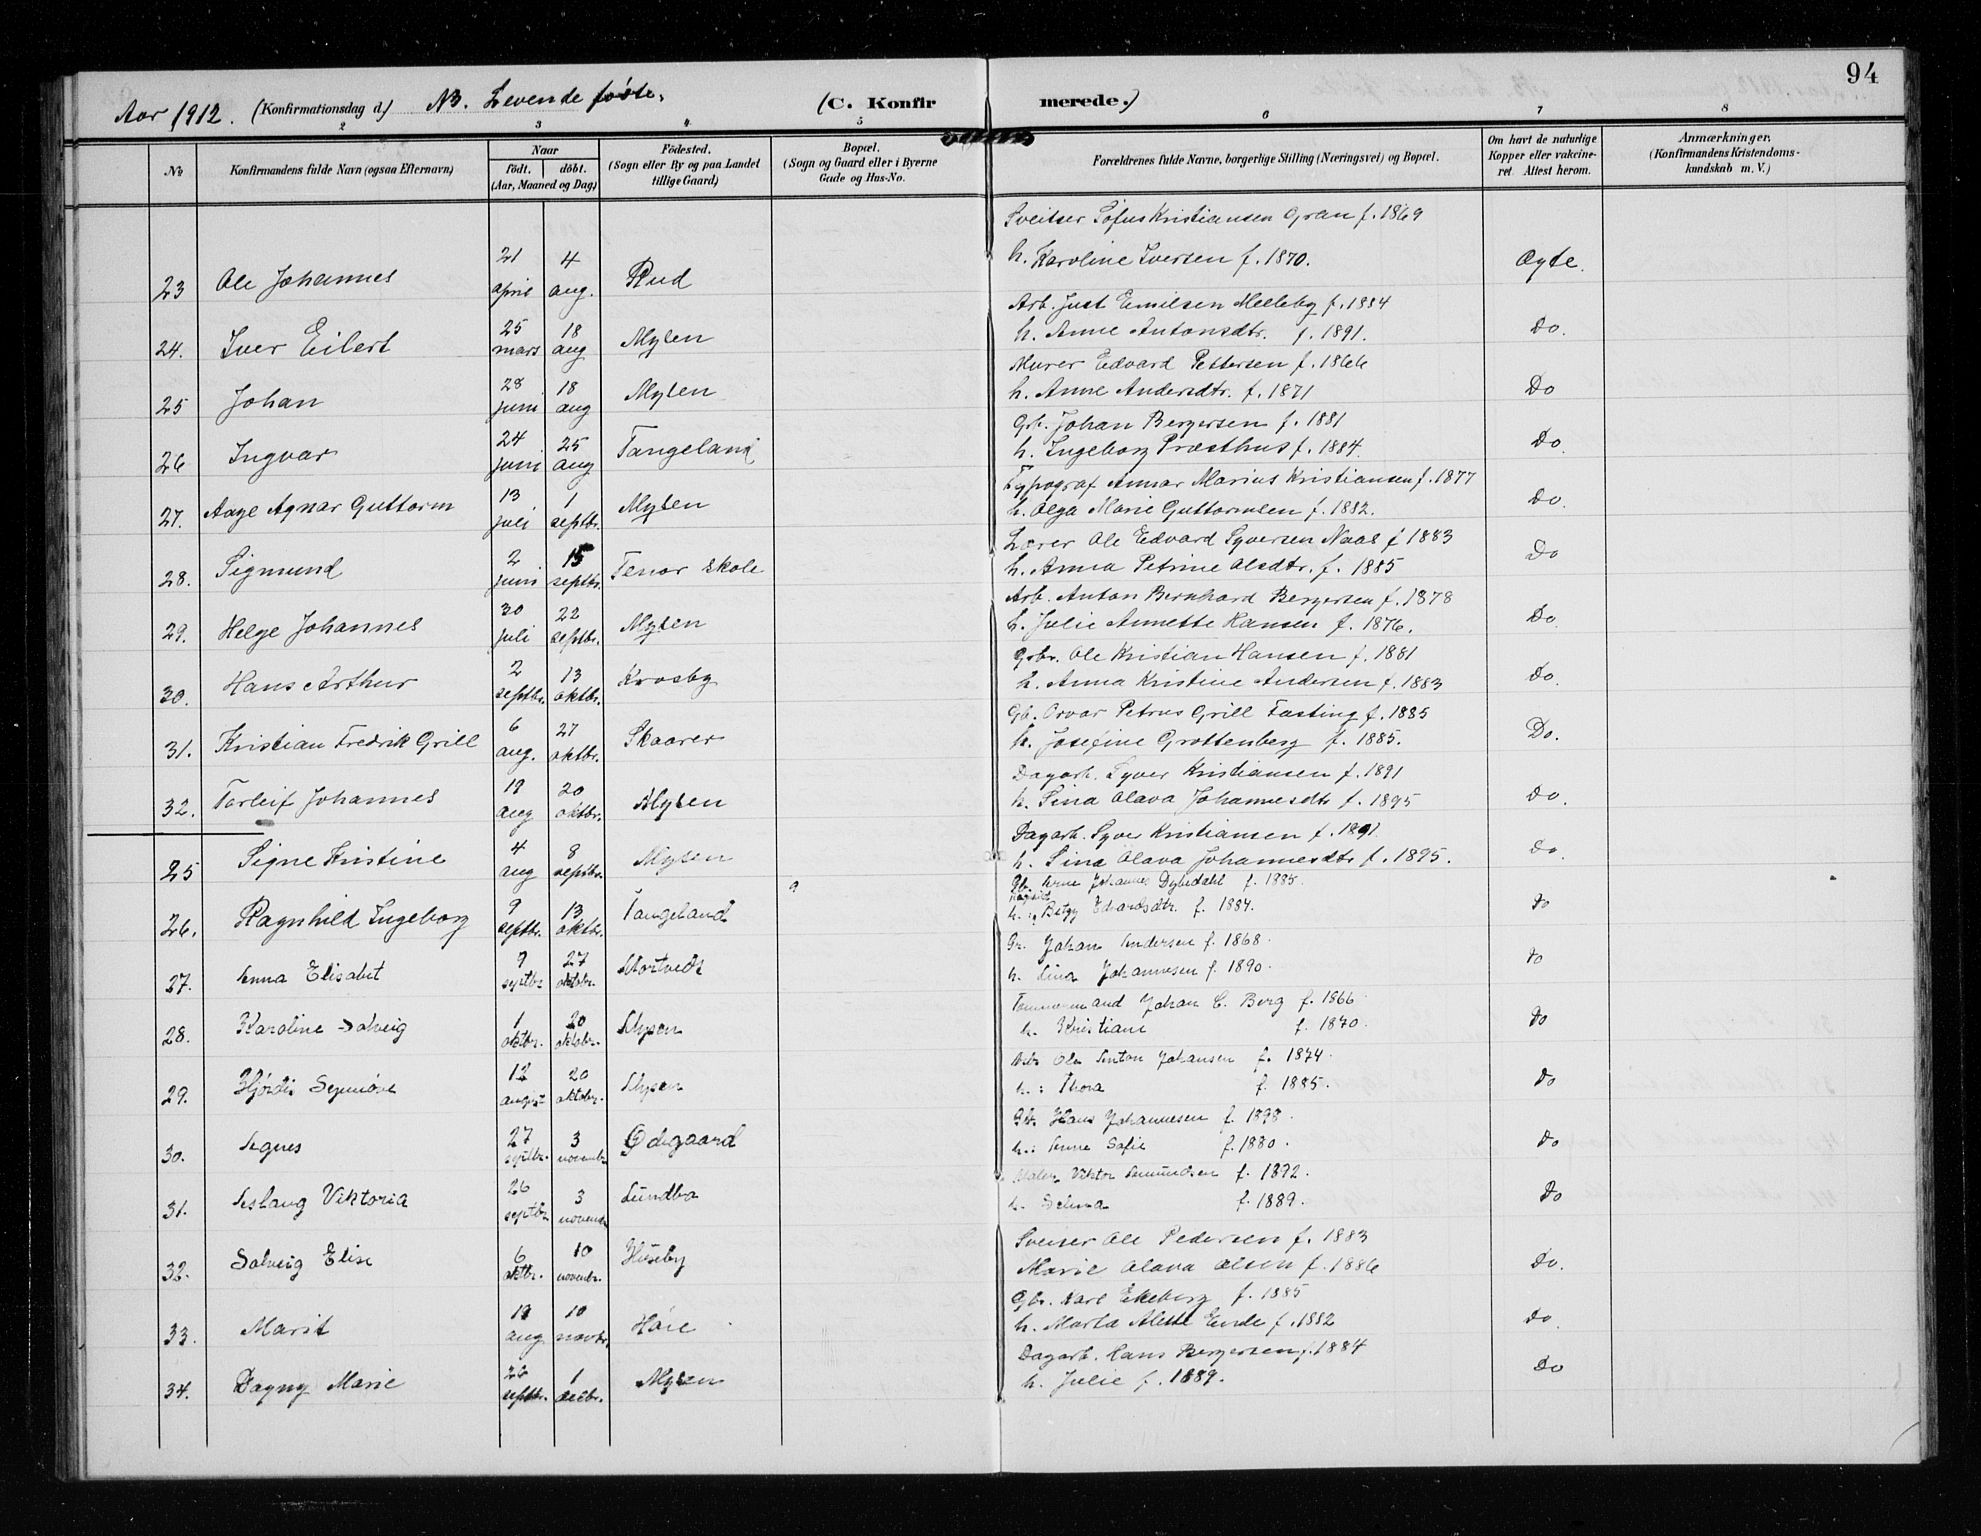 94
Aar 1912. (Konfirmationsdag d.) NB. Levende føste. (C. Konfirmerede.)
2 3 4 5 6 7 8
No
Konfirmandens fulde Navn (ogsaa Efternavn)
Naar
født. døbt.
(Aar, Maaned og Dag)
Fødested.
(Sogn eller By og paa Landet
tillige Gaard)
Bopæl.
(Sogn og Gaard eller i Byerne
Gade og Hus-No.
Forældrenes fulde Navne, borgerlige Stilling (Næringsvei) og Bopæl.
Om havt de naturlige
Kopper eller vakcine-
ret. Attest herom.
Anmærkninger.
(Konfirmandens Kristendoms-
kundskab m. V.)
Sveitser Sofus Kristiansen Gran f. 1869
23 Ole Johannes 21 april 4 aug. Rud h. Karoline Iversen f. 1870. Ægte.
Arb. Just Emilsen Melleby f. 1884
24. Iver Eilert 25 mars 18 aug Mysen h. Anne Antonsdtr. f. 1891. Do.
Murer Edvard Pettersen f. 1866
25 Johan 28 juni 18 aug Mysen h. Anne Andersdtr. f. 1871 Do
Grb. Johan Bergersen f. 1881
26 Ingvar 24 juni 25 aug Tangeland h. Ingeborg Præsthus f. 1884. Do.
Typograf Annar Marius Kristiansen f. 1877
27. Aage Agnar Guttorm 13 juli 1 septbr. Mysen h. Olga Marie Guttormsen f. 1882. Do.
Lærer Ole Edvard Syversen Naas f 1883
28. Sigmund 2 juni 15 septbr. Tenor skole h. Anna Petrine Olsdtr. f. 1885 Do
Arb. Anton Bernhard Bergersen f. 1878
29. Helge Johannes 30 juli 22 septbr. Mysen h. Julie Annette Hansen f. 1876. Do
Grbr. Ole Kristian Hansen f. 1881
30. Hans Arthur 2 septbr. 13 oktbr. Krosby h. Anna Kristine Andersen f. 1883 Do.
Gb. Orvar Petrus Grill Fasting f. 1885
31. Kristian Fredrik Grill 6 aug. 27 oktbr. Skaarer h. Josefine Grottenberg f. 1885. Do.
Dagarb. Syver Kristiansen f. 1891
32. Torleif Johannes 19 aug 20 oktbr. Mysen h. Sina Olava Johannesdtr f. 1895 Do.
Dagarb. Syver Kristiansen f. 1891
25 Signe Kristine 4 aug 8 septbr. Mysen h. Sina Olava Johannesdtr f. 1895. Do.
Gb. Arne Johannes Dybedahl f. 1885.
26. Ragnhild Ingeborg 9 septbr. 13 oktbr. Tangeland h. Betzy Edvardsdtr. f. 1884. Do
Gr. Johan Andersen f. 1868.
27. Anna Elisabet 9 septbr 27 oktobr. Mortvedt h. Lina Johannesen f. 1890. Do
Tømmermand Johan C. Berg f. 1866
28. Karoline Solveig 1 oktbr. 20 oktobr. Mysen h. Kristiane f. 1870. Do
Arb. Ole Anton Johansen f. 1874
29. Hjördis Synnöve 12 august 20 oktobr. Mysen h.: Thora f. 1885. Do
Gb. Hans Johannesen f. 1898.
30. Agnes 27 septbr. 3 novembr. Ødegaard h.: Anne Sofie f. 1880. Do
Maler Viktor Amundsen f. 1892
31. Aslaug Viktoria 26 septbr 3 novembr Lundba h. Selma f. 1889. Do
Sveiser Ole Pedersen f. 1883
32. Solveig Elise 6 oktbr. 10 novembr. Huseby Marie Olava Olsen f. 1886 Do.
Gbr. Karl Ekeberg f. 1885
33. Marit 19 aug 10 novbr. Høie h. Marta Alette Ende f. 1882 Do.
Dagarb. Hans Bergersen f. 1884
34. Dagny Marie 26 septbr. 1 decbr. Mysen h. Julie f. 1889. Do